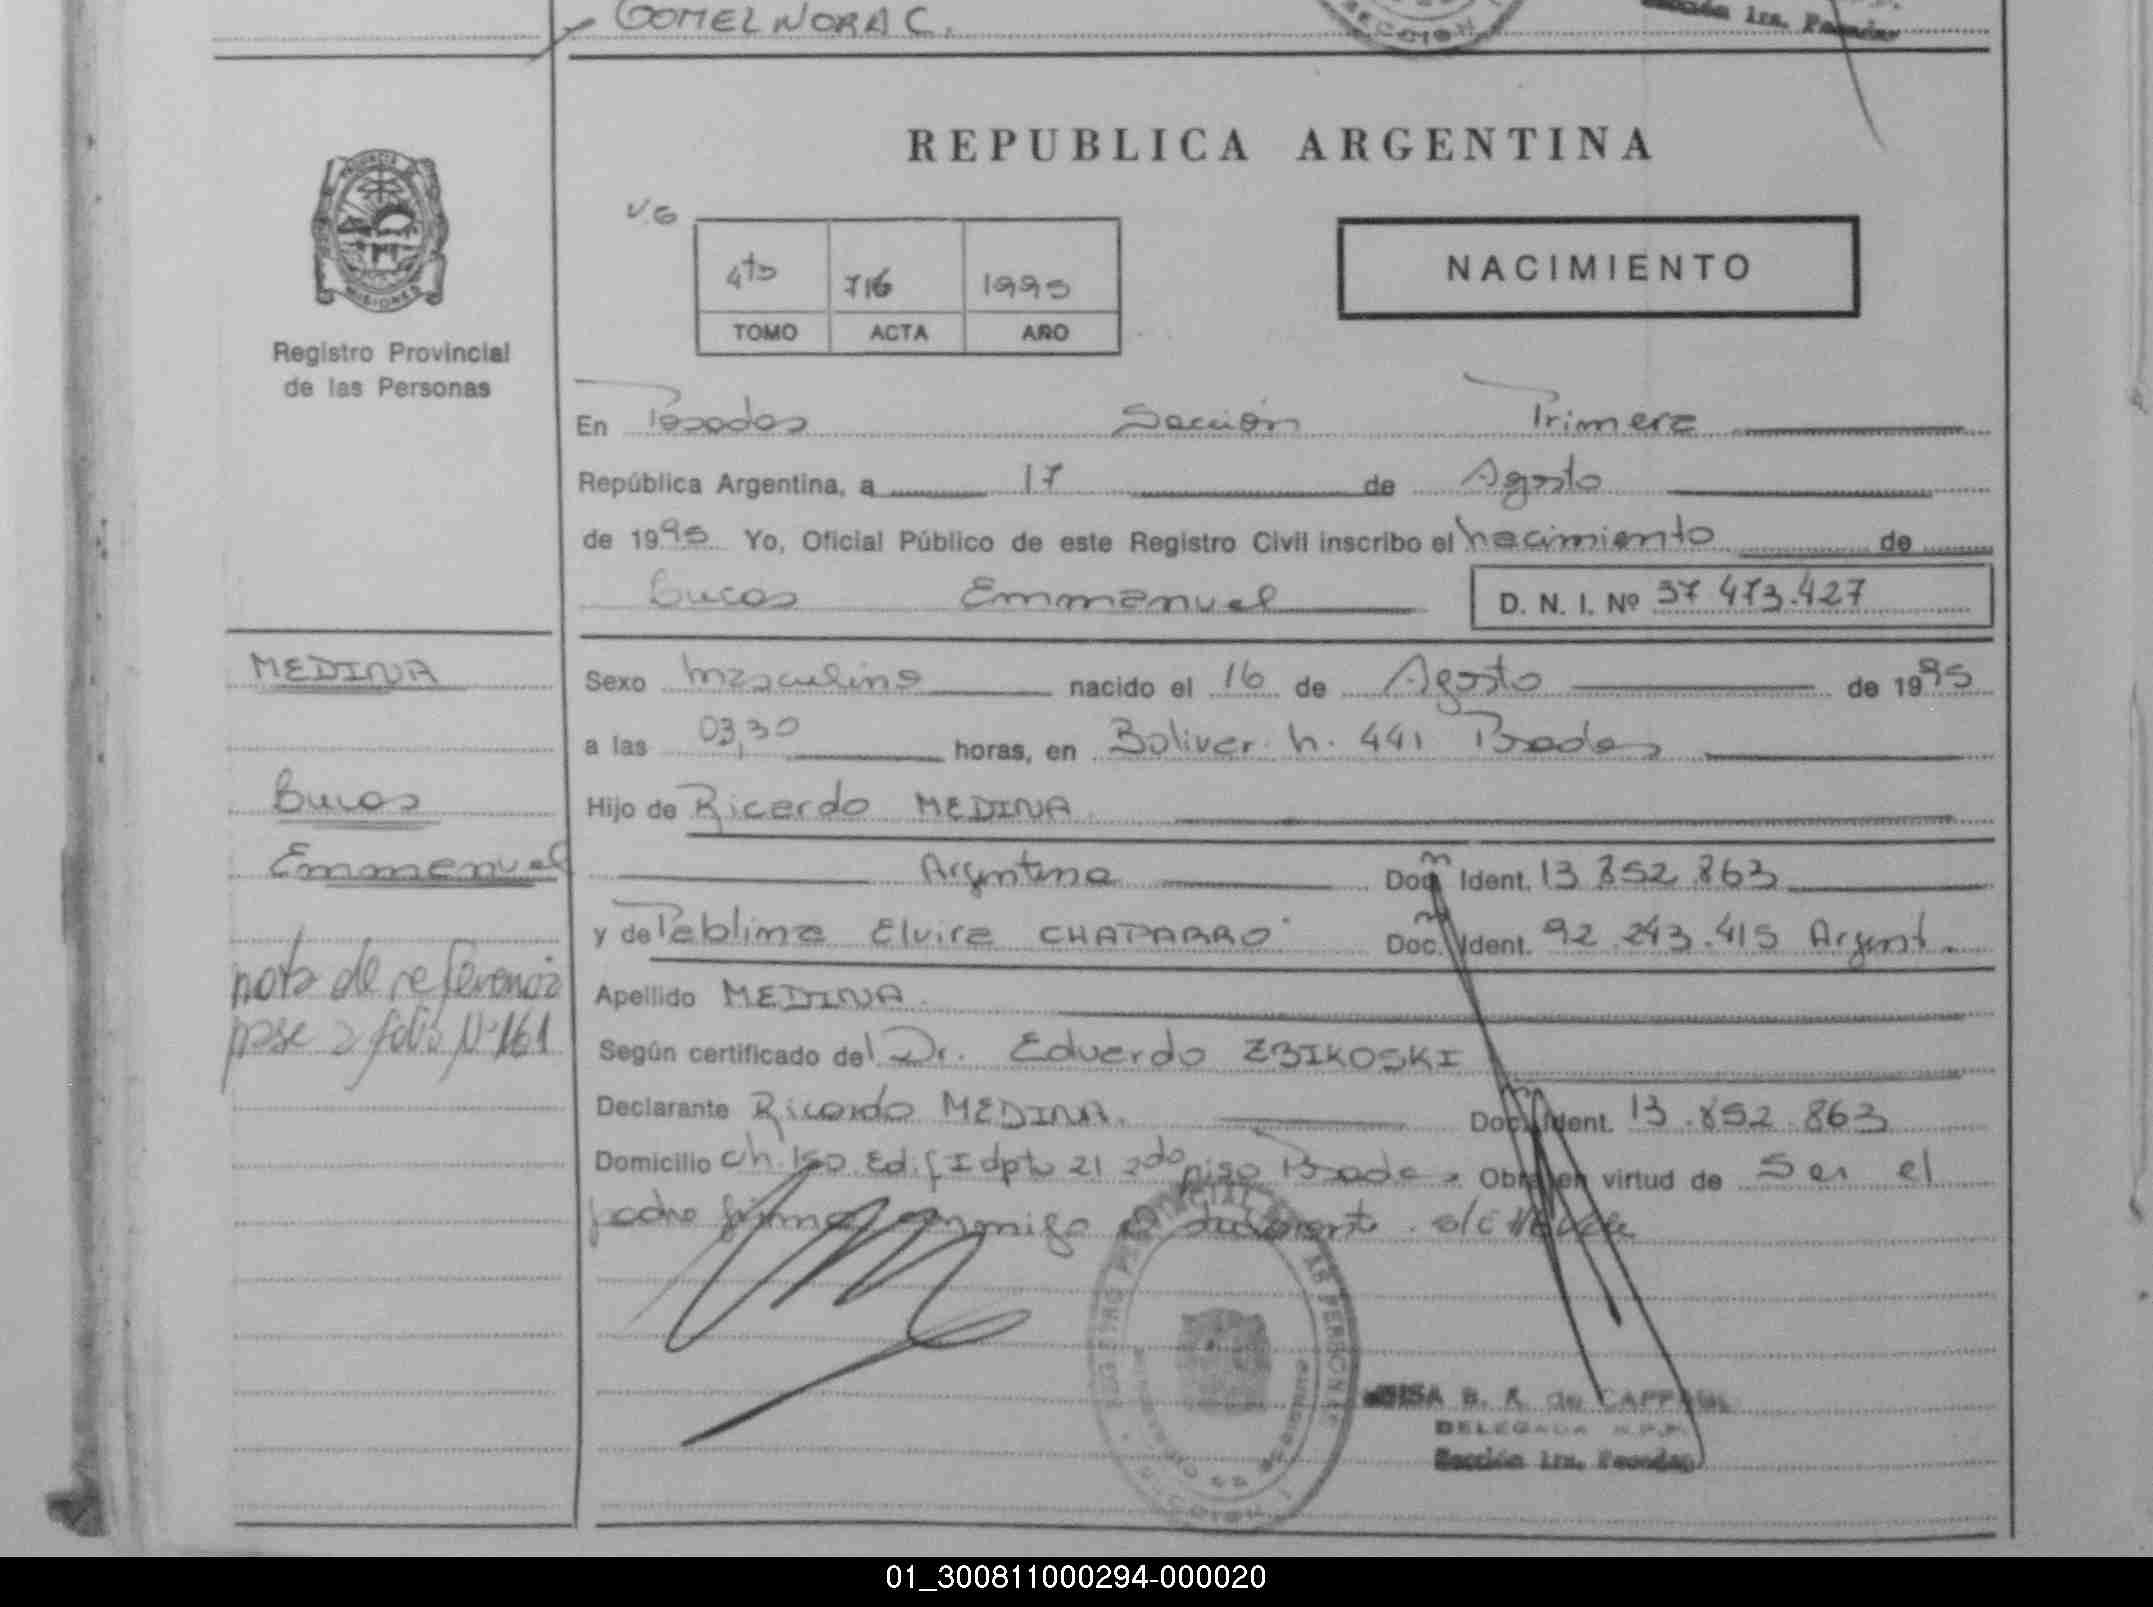 GOMEL NORA C.
SECCION
Sección 1ra. Posadas
REPUBLICA ARGENTINA
V.G
4to 716 1995
TOMO ACTA AÑO
NACIMIENTO
MISIONES
Registro Provincial
de las Personas
En Posadas Sección Primera
República Argentina, a 17 de Agosto
de 1995 Yo, Oficial Público de este Registro Civil inscribo el nacimiento de
Lucas Emmanuel D. N. I. Nº 37 473.427
MEDINA
Sexo masculino nacido el 16 de Agosto de 1995
a las 03,30 horas, en Bolivar. n. 441 Posadas
Lucas
Hijo de Ricardo MEDINA
Emmanuel
Argentina Doc. Ident. 13 852 863
y de Pablina Elvira CHAPARRO Doc. Ident. 92.243.415 Argent.
nota de referencia
Apellido MEDINA
pase a folio Nº 161
Según certificado del Dr. Eduardo ZBIKOSKI
Declarante Ricardo MEDINA. Doc. Ident. 13.852.863
Domicilio ch. 150 Ed. dpto 21 2do piso Posadas Obra en virtud de Ser el
padre firma conmigo el declarante.
B. R. de
DELEGADA R.P.P.
Sección 1ra. Posadas
01_300811000294-000020